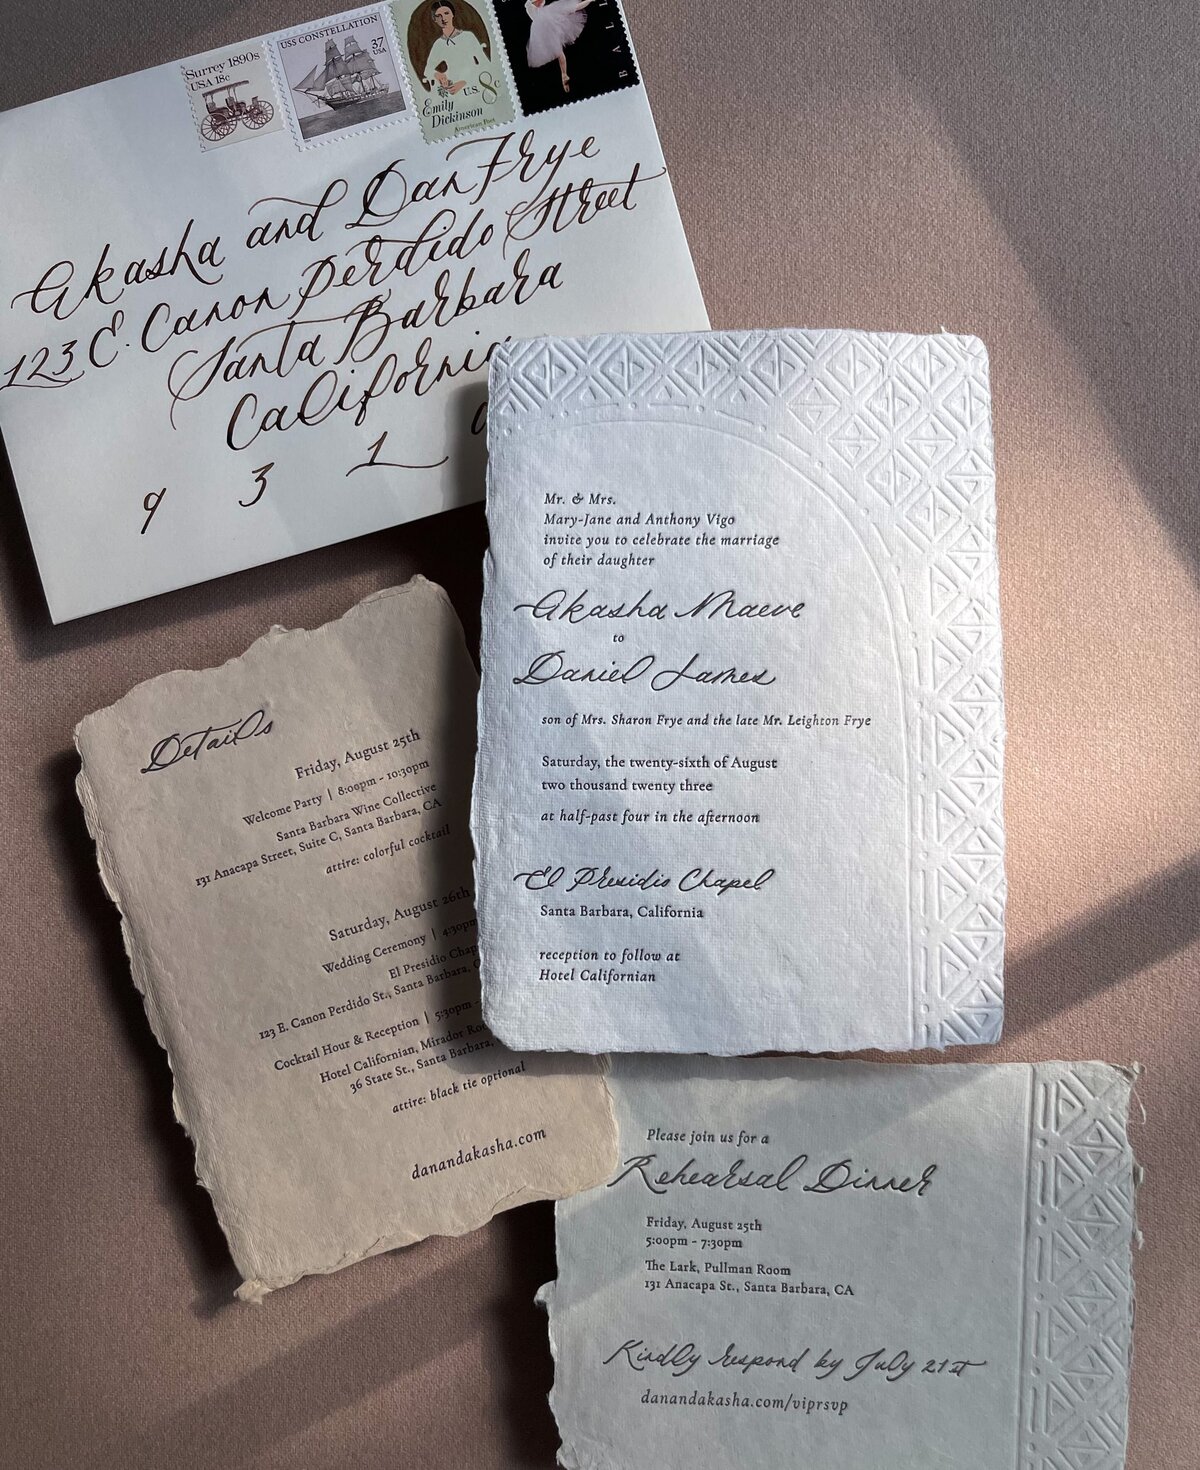 Surrey 1890s
USA 18c
USS CONSTELLATION
37
USA
Emily
Dickinson
U.S. 8c
American Poet
BALL
Akasha and Dan Frye
123 E. Canon Perdido Street
Santa Barbara
California
9 3 1
Mr. & Mrs.
Mary-Jane and Anthony Vigo
invite you to celebrate the marriage
of their daughter
Akasha Maeve
to
Daniel James
son of Mrs. Sharon Frye and the late Mr. Leighton Frye
Saturday, the twenty-sixth of August
two thousand twenty three
at half-past four in the afternoon
El Presidio Chapel
Santa Barbara, California
reception to follow at
Hotel Californian
Details
Friday, August 25th
Welcome Party | 8:00pm - 10:30pm
Santa Barbara Wine Collective
131 Anacapa Street, Suite C, Santa Barbara, CA
attire: colorful cocktail
Saturday, August 26th
Wedding Ceremony | 4:30pm
El Presidio Chap
123 E. Canon Perdido St., Santa Barbara,
Cocktail Hour & Reception | 5:30pm -
Hotel Californian, Mirador
36 State St., Santa Barbara,
attire: black tie optional
danandakasha.com
Please join us for a
Rehearsal Dinner
Friday, August 25th
5:00pm - 7:30pm
The Lark, Pullman Room
131 Anacapa St., Santa Barbara, CA
Kindly respond by July 21st
danandakasha.com/viprsvp